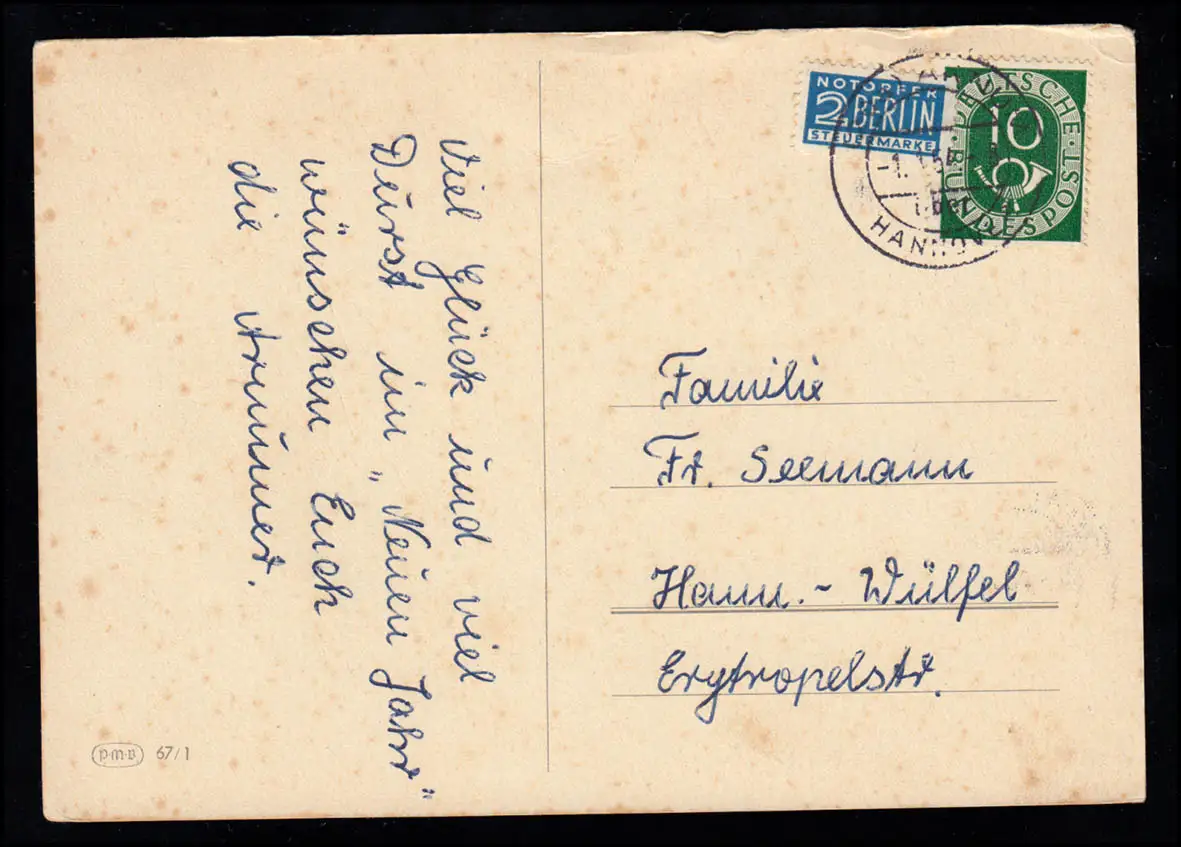 Viel Glück und viel
Durst im „Neuen Jahr"
wünschen Euch
die
NOTOPFER
2 BERLIN
STEUERMARKE
DEUTSCHE BUNDESPOST
10
-1.
HANNOV
Familie
Fr. Seemann
Hann.- Wülfel
p·m·v 67/1